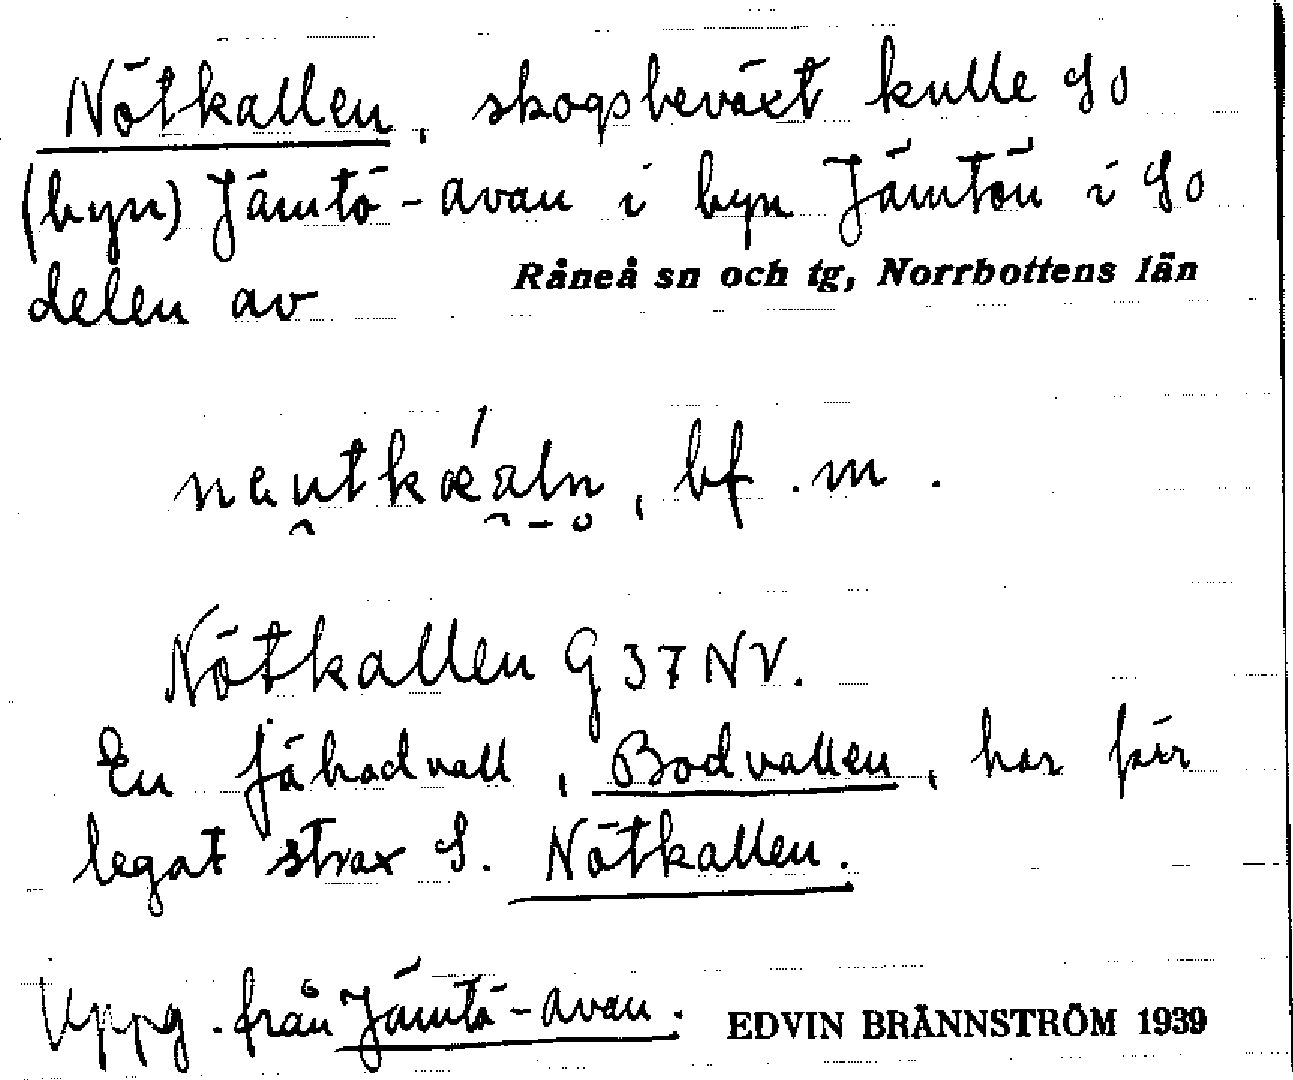 Nötkallen, skogsbeväxt kulle SO
(byn) Jämtö-avan i byn Jämtön i SO
delen av Råneå sn och tg, Norrbottens län
nau̯tkǽa̯l̠n̥, bf. m.
Nötkallen G 37 NV.
En fäbodvall, Bodvallen, har förr
legat strax S. Nötkallen.
Uppg. från Jämtö-avan. EDVIN BRÄNNSTRÖM 1939